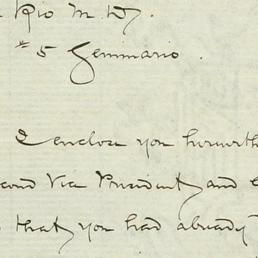 Rio M Ry.
# 5 Geminario.
I enclose you herewith
cond Vice President and
that you had already